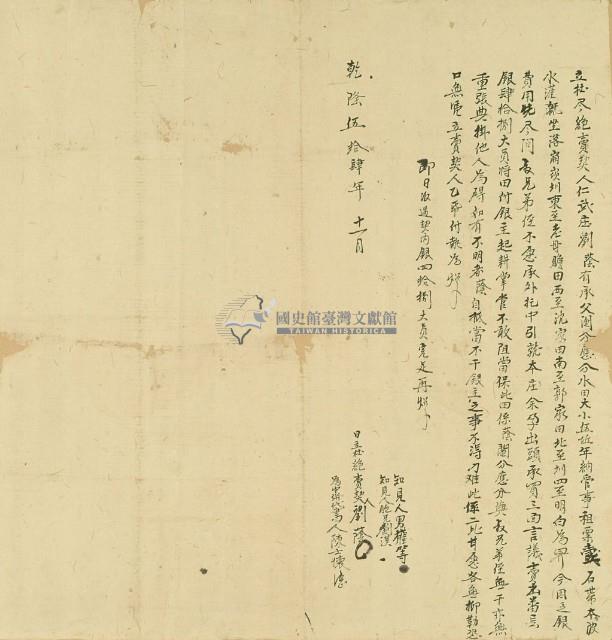 立杜尽絕賣契人仁武庄劉蔭有承父鬮分應分水田大小伍坵年納管事租粟 石帶本陂
水灌 坐落 圳東至老母贍田西至沈家田南至郭家田北至圳四至明白為界今因乏銀
費用先尽問 兄弟侄不愿承外托中引就本庄余 出頭承買三面言議賣 番
銀肆拾捌大員將田付銀主起耕掌管不敢阻當保此田係蔭鬮分應分與 兄弟侄無干亦無
重張典掛他人為碍如有不明者蔭自抵當不干銀主之事不得刁难此係二比甘愿各無抑勒恐
口無憑立賣契人乙帋付執為炤
即日收過契內銀四拾捌大員完足再炤
乾隆伍拾肆年十一月
知見人男 等
知見人胞兄劉
日立杜絕賣契人劉蔭
為中 人陳
國史館臺灣文獻館
TAIWAN HISTORICA